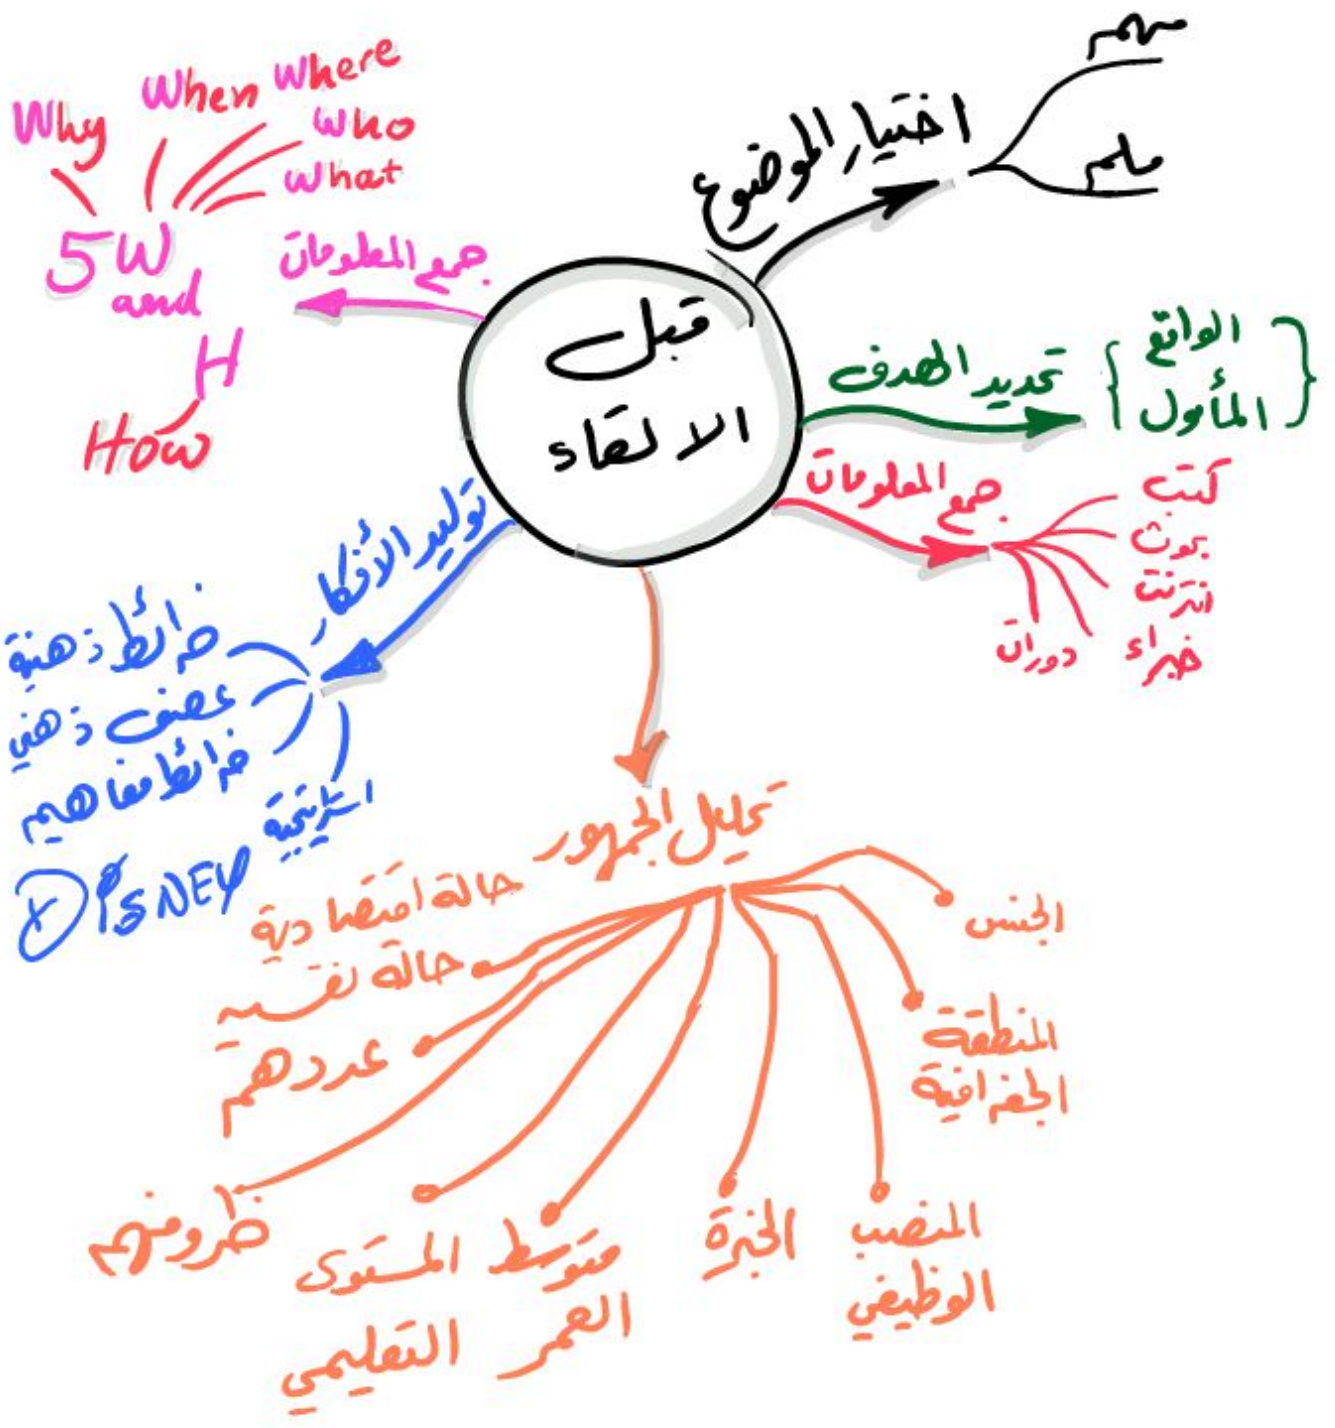 قبل
الالقاء
اختيار الموضوع
مهم
ملهم
تحديد الهدف
الواقع
المأمول
جمع المعلومات
كتب
بحوث
انترنت
خبراء
دورات
تحليل الجمهور
الجنس
المنطقة
الجغرافية
المنصب
الوظيفي
الخبرة
متوسط
العمر
المستوى
التعليمي
ظروفهم
عددهم
حالة نفسيه
حالة اقتصادية
توليد الأفكار
خرائط ذهنية
عصف ذهني
خرائط مفاهيم
استراتيجية
DISNEY
جمع المعلومات
5W
and
H
Why
When
Where
Who
What
How